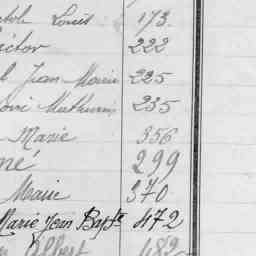 Louis 173
ictor 222
Jean Marie 225
Mathurin 235
Marie 356
né 299
Marie 370
Marie Jean Bapte 472
Albert 482